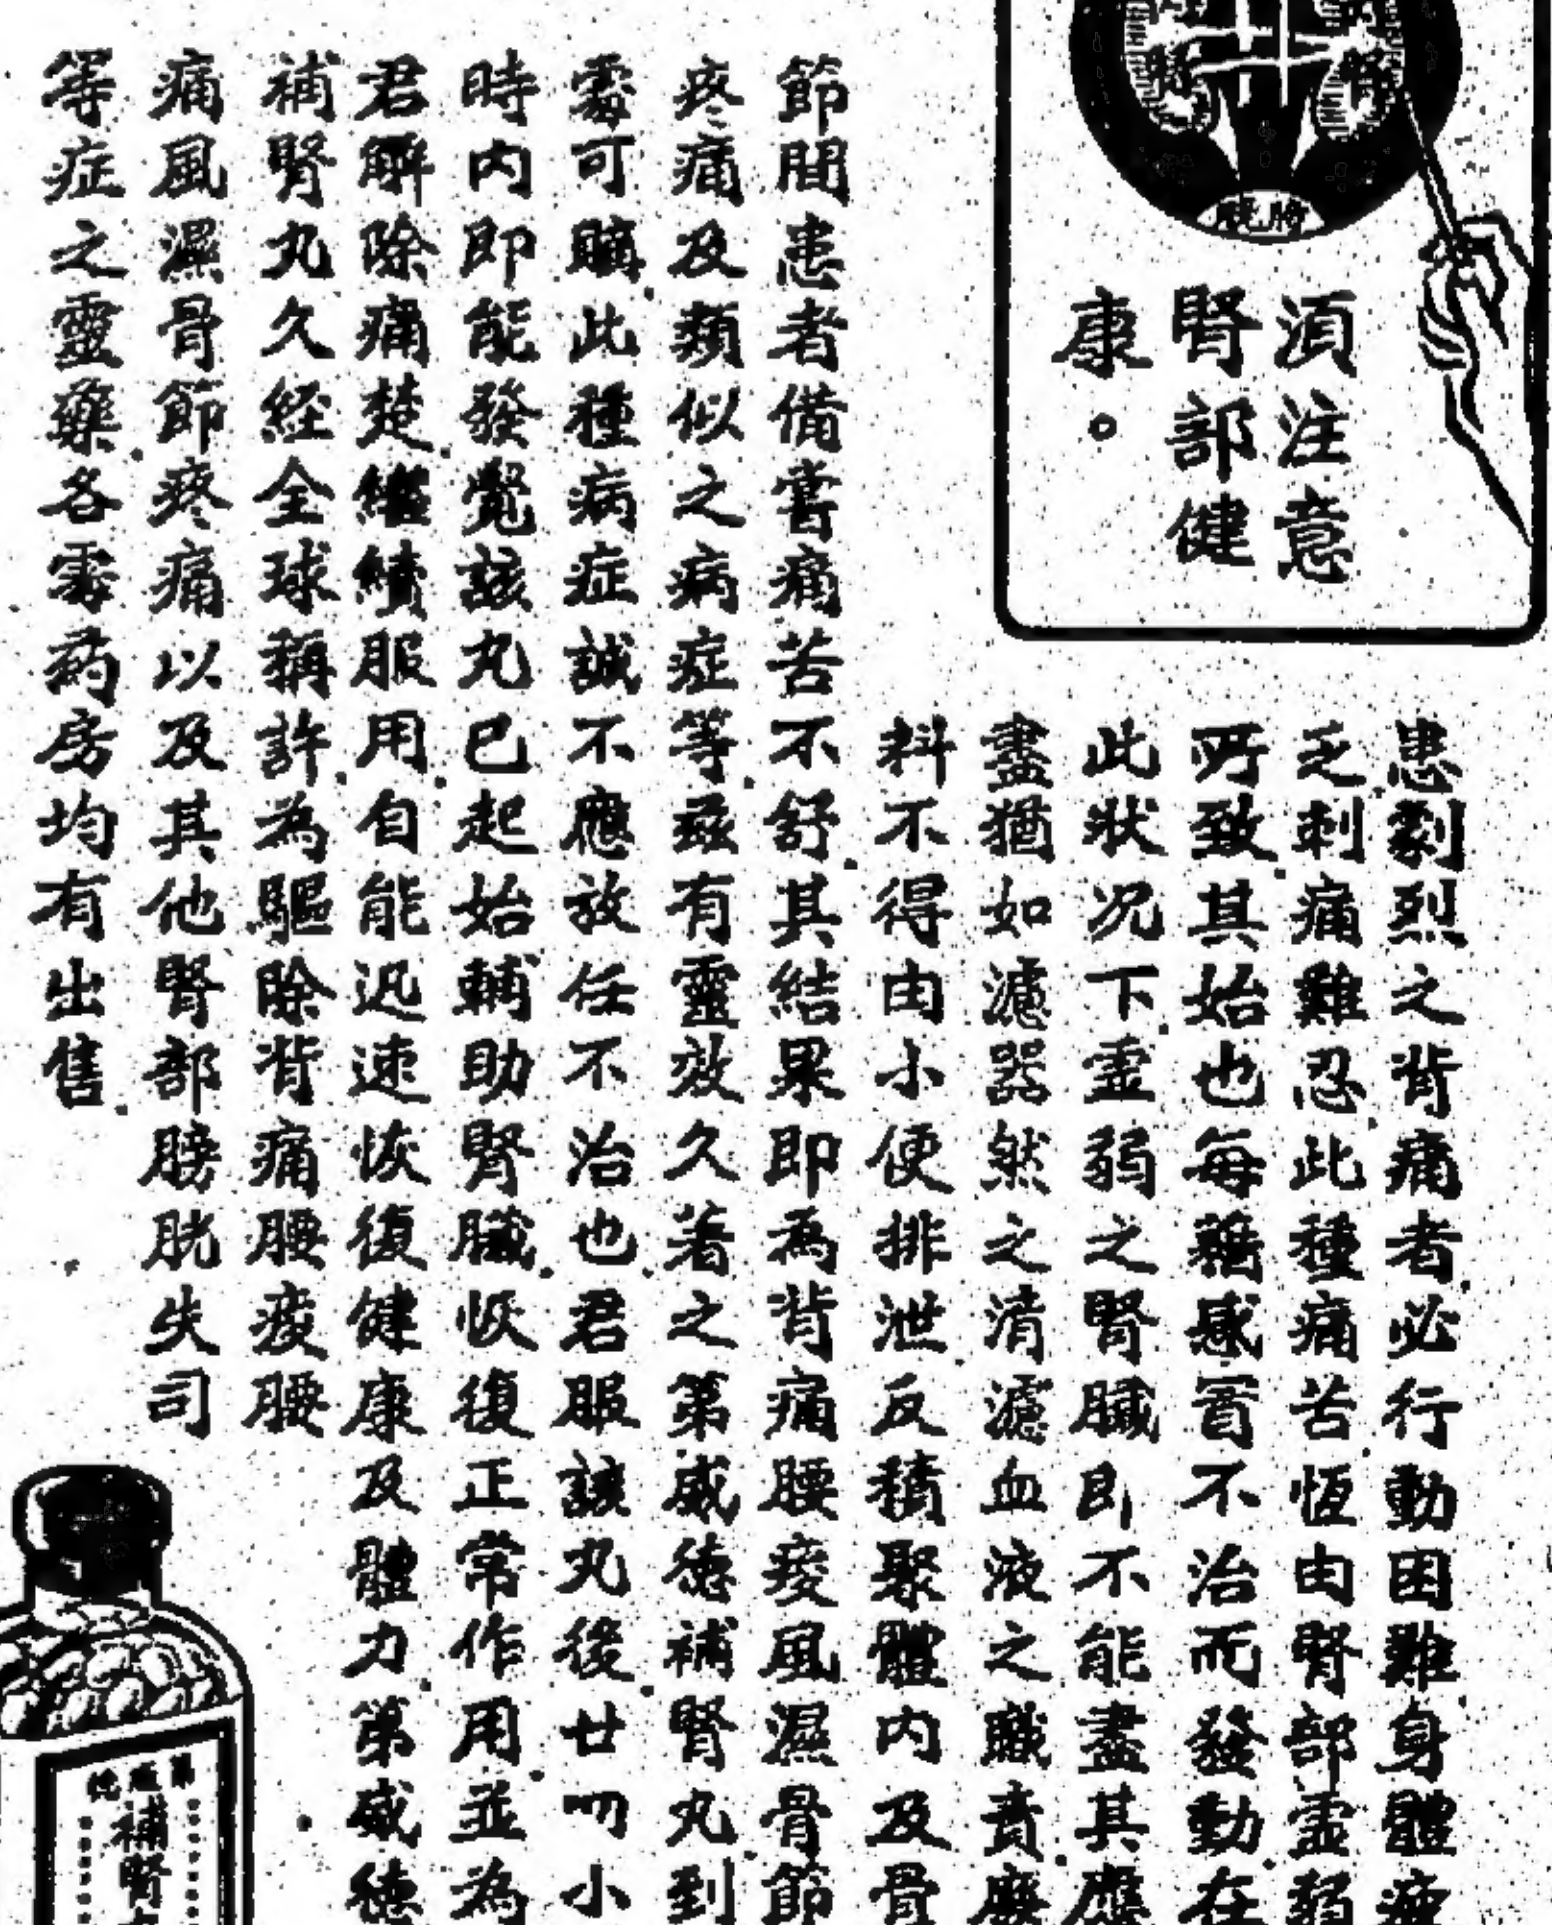 腎
腎
膀胱
須注意
腎部健
康。
患劇烈之背痛者.必行動困難.身體疲
乏.刺痛難忍.此種痛苦恆由腎部虛弱
所致.其始也每藉感冒不治而發動.在
此狀況下.虛弱之腎臟即不能盡其應
盡猶如濾器然之清濾血液之職責.廢
料不得由小便排泄.反積聚體內及骨
節間患者備嘗痛苦不舒.其結果即為背痛腰痠風濕骨節
疼痛及類似之病症等.茲有靈效久著之第威德補腎丸.到
處可購.此種病症誠不應放任不治也.君服該丸後.廿四小
時內即能發覺該丸已起始輔助腎臟.恢復正常作用.並為
君解除痛楚.繼續服用.自能迅速恢復健康及體力.第威德
補腎丸久經全球稱許.為驅除背痛腰痠腰
痛風濕骨節疼痛以及其他腎部膀胱失司
等症之靈藥.各處葯房均有出售.
第威德
補腎